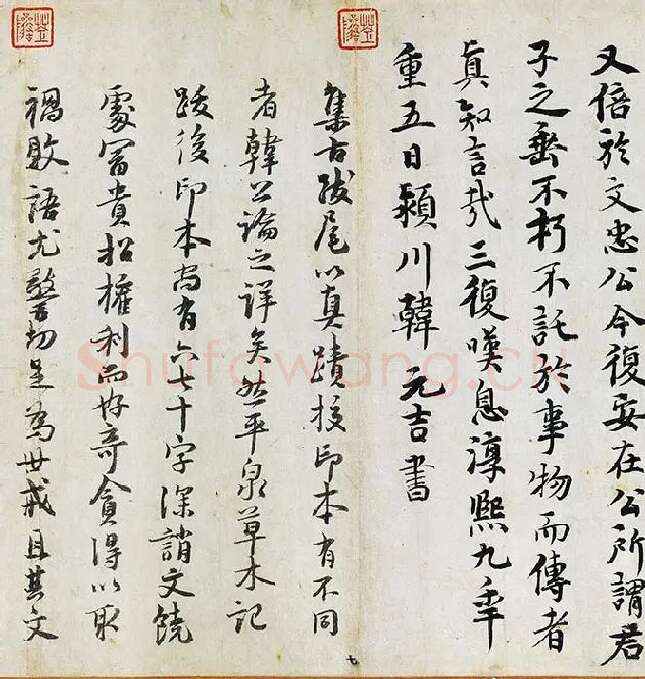 又倍於文忠公今復安在公所謂君
子之垂不朽不託於事物而傳者
眞知言哉三復嘆息淳熙九年
重五日頴川韓元吉書
集古跋尾以真蹟校印本有不同
者韓公論之詳矣然平泉草木記
跋後印本尚有六七十字深誚文饒
處富貴招權利而好奇貪得以取
禍敗語尤警切足為世戒且其文
七
Shufawang.cn